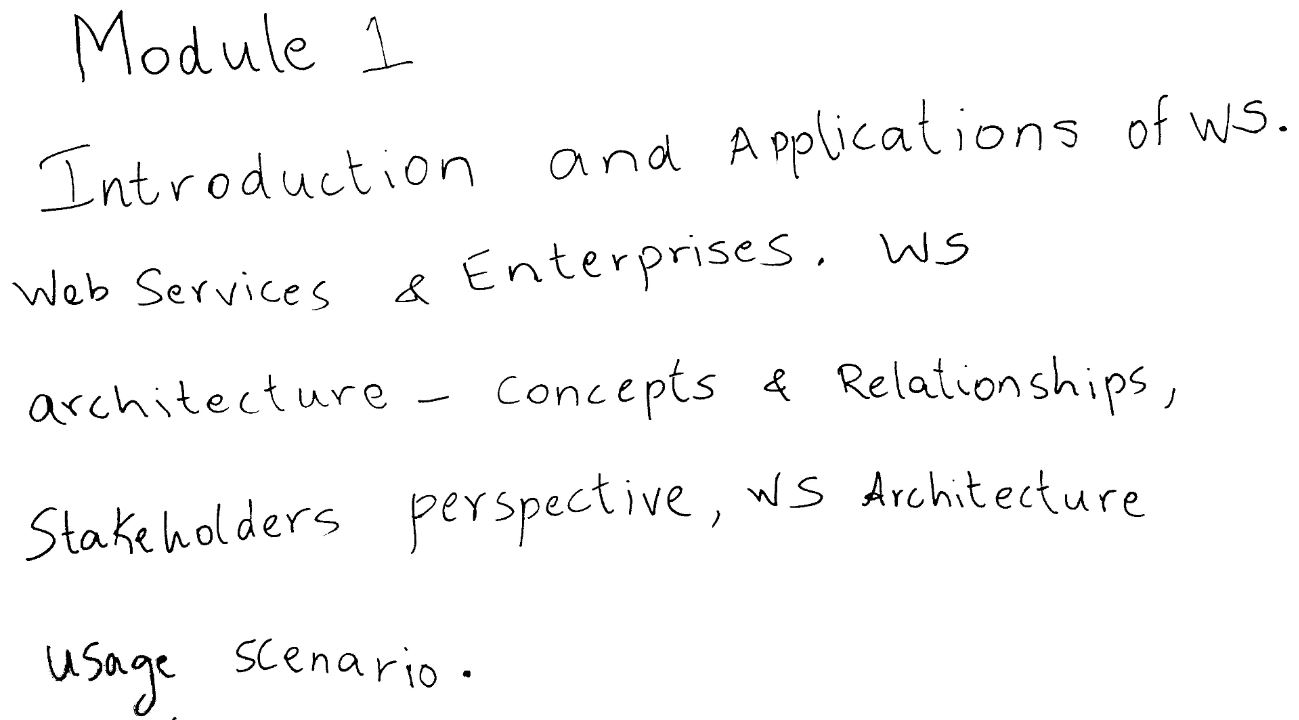 Module 1
Introduction and Applications of WS.
Web Services & Enterprises. WS
architecture - Concepts & Relationships,
Stakeholders perspective, WS Architecture
usage scenario.